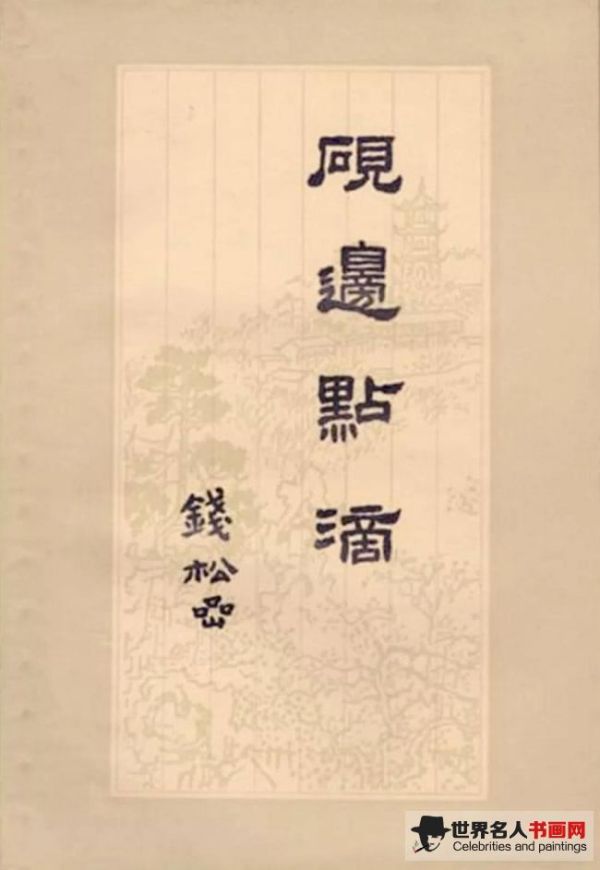 硯邊點滴
錢松嵒
世界名人书画网
Celebrities and paintings